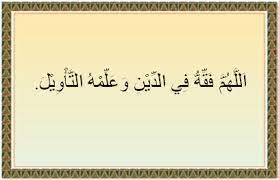 اَللَّهُمَّ فَقِّهُّ فِي الدِّيْنِ وَ عَلِّمْهُ التَّأْوِيْلَ.